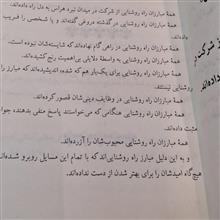 همهٔ مبارزان راه روشنایی از شرکت در میدان نبرد هراس به دل راه داده‌اند.
همهٔ مبارزان راه روشنایی در گذشته دروغی گفته‌اند و یا شخصی را فریب
داده‌اند.
همهٔ مبارزان راه روشنایی در راهی گام نهاده‌اند که شایسته‌شان نبوده است.
همهٔ مبارزان راه روشنایی به واسطهٔ دلایلی بی‌اهمیت رنج کشیده‌اند.
همهٔ مبارزان راه روشنایی برای یک‌بار هم که شده اندیشیده‌اند که مبارز راه
روشنایی نیستند.
همهٔ مبارزان راه روشنایی در وظایف دینی‌شان قصور کرده‌اند.
همهٔ مبارزان راه روشنایی هنگامی که می‌خواستند پاسخ منفی بدهند جواب
مثبت داده‌اند.
همهٔ مبارزان راه روشنایی محبوب‌شان را آزرده‌اند.
و به این دلیل مبارز راه روشنایی‌اند که با تمام این مسایل روبرو شده‌اند
هیچ‌گاه امیدشان را برای بهتر شدن از دست نداده‌اند.
شرکت در
داده‌اند.